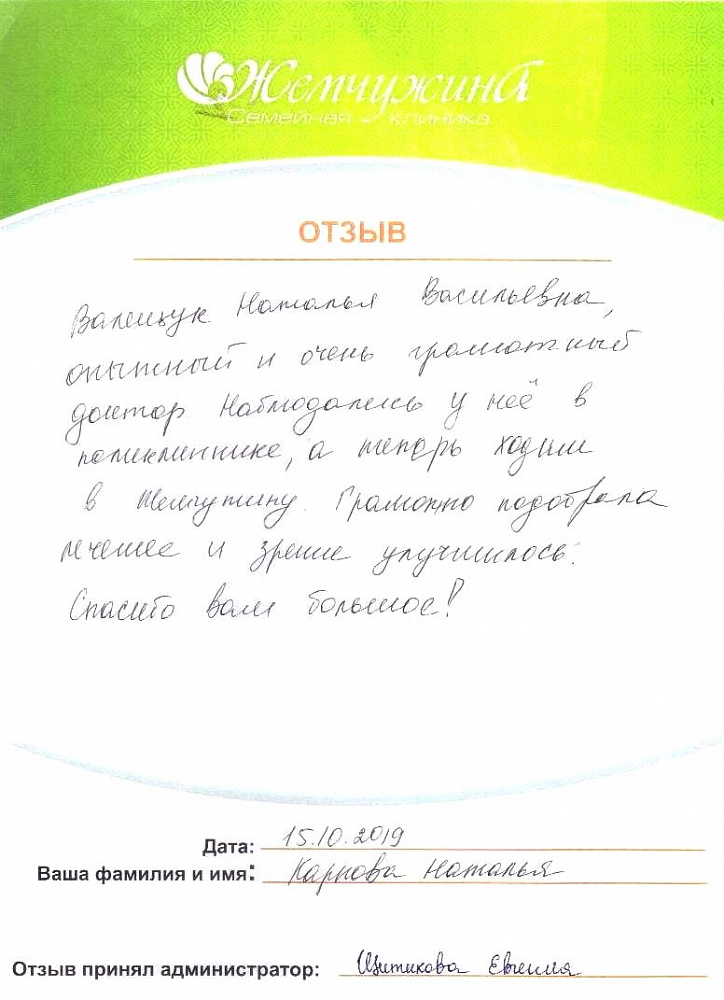 Жемчужина
Семейная клиника
ОТЗЫВ
Валещук Наталья Васильевна,
опытный и очень грамотный
доктор. Наблюдались у неё в
поликлинике, а теперь ходим
в Жемчужину. Грамотно подобрала
лечение и зрение улучшилось.
Спасибо вам большое!
Дата: 15.10.2019
Ваша фамилия и имя: Карпова Наталья
Отзыв принял администратор: Щитикова Евгения